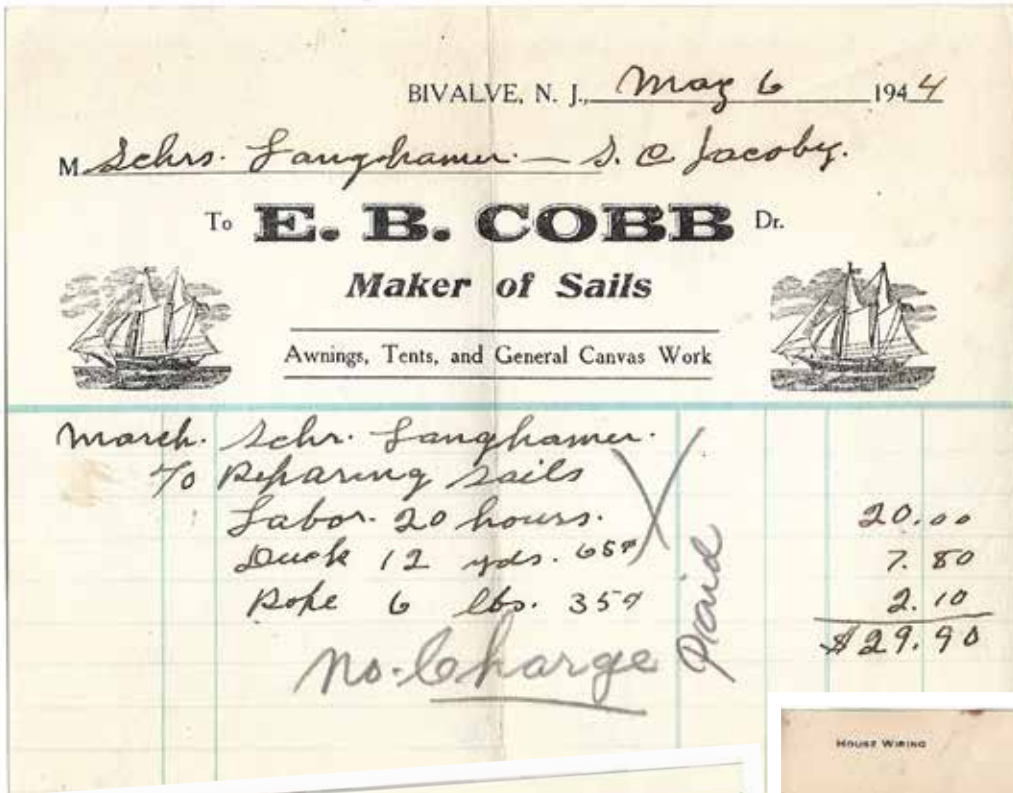 BIVALVE, N. J., May 6 1944
M Schrs. Langhamer. — S. C Jacoby.
To E. B. COBB Dr.
Maker of Sails
Awnings, Tents, and General Canvas Work
March. Schr. Langhamer.
To Reparing Sails
Labor. 20 hours. 20.00
Duck 12 yds. 65¢ 7.80
Rope 6 lbs. 35¢ 2.10
$29.90
No. Charge
Paid
HOUSE WIRING